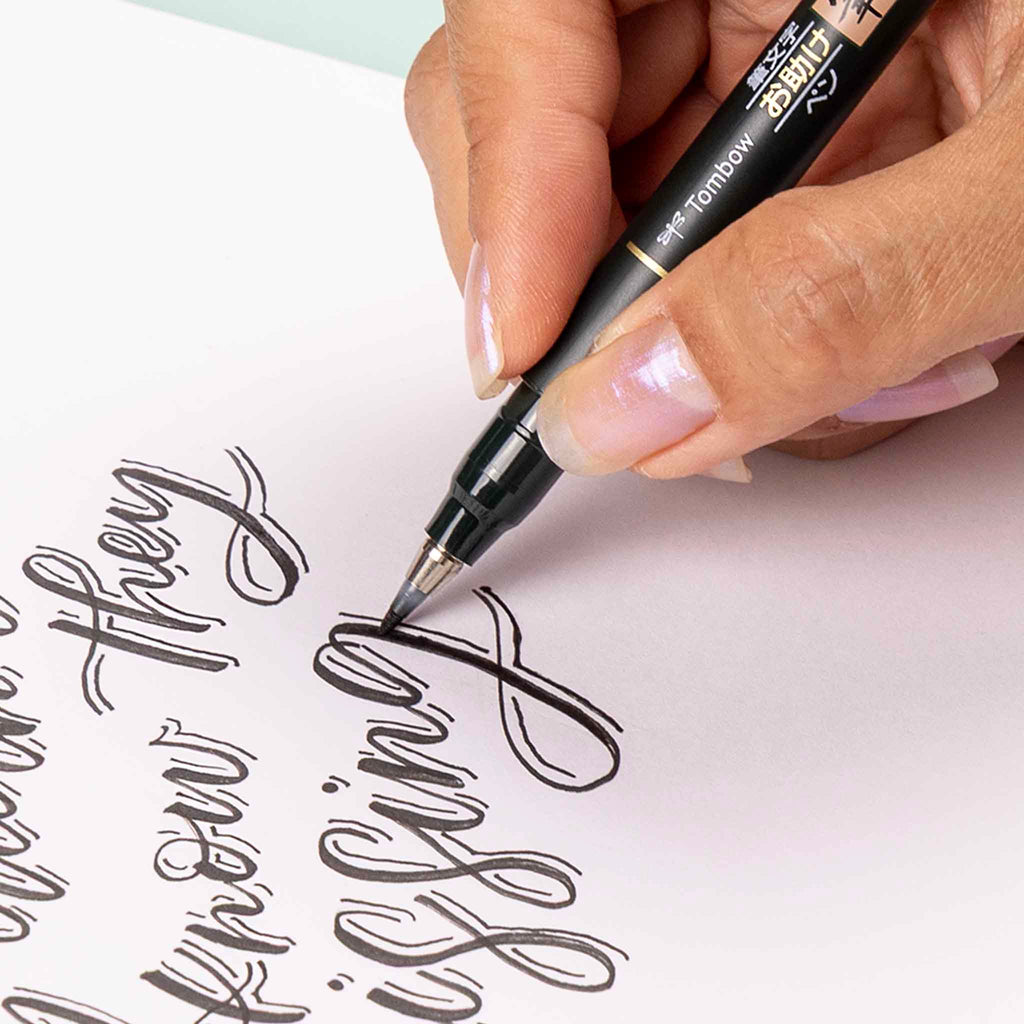 筆
筆文字
お助け
ペン
Tombow
know they
issing